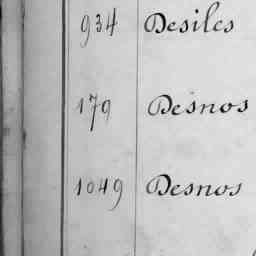 934 Desiles
179 Desnos
1049 Desnos